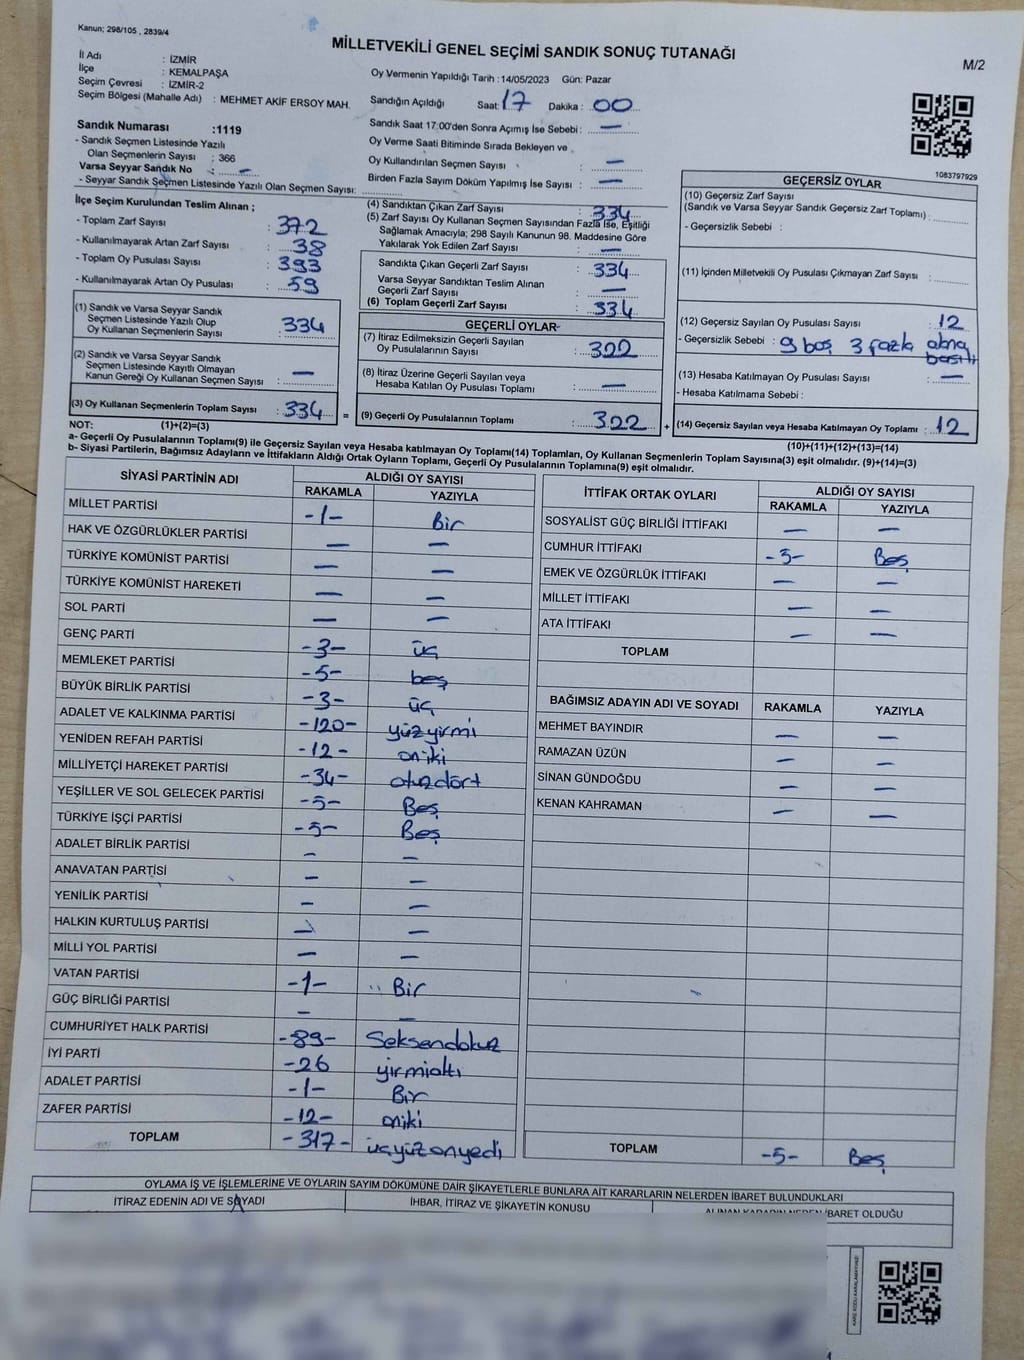 Kanun; 298/105 , 2839/4
MİLLETVEKİLİ GENEL SEÇİMİ SANDIK SONUÇ TUTANAĞI
M/2
İl Adı : İZMİR
İlçe : KEMALPAŞA
Seçim Çevresi : İZMİR-2
Seçim Bölgesi (Mahalle Adı) : MEHMET AKİF ERSOY MAH.
Oy Vermenin Yapıldığı Tarih :14/05/2023 Gün: Pazar
Sandığın Açıldığı Saat: 17 Dakika : 00
Sandık Saat 17:00'den Sonra Açımış İse Sebebi : —
Oy Verme Saati Bitiminde Sırada Bekleyen ve
Oy Kullandırılan Seçmen Sayısı : —
Birden Fazla Sayım Döküm Yapılmış İse Sayısı : —
Sandık Numarası :1119
- Sandık Seçmen Listesinde Yazılı
Olan Seçmenlerin Sayısı : 366
Varsa Seyyar Sandık No : —
- Seyyar Sandık Seçmen Listesinde Yazılı Olan Seçmen Sayısı:
1083797929
İlçe Seçim Kurulundan Teslim Alınan ;
- Toplam Zarf Sayısı : 372
- Kullanılmayarak Artan Zarf Sayısı : 38
- Toplam Oy Pusulası Sayısı : 393
- Kullanılmayarak Artan Oy Pusulası : 59
(1) Sandık ve Varsa Seyyar Sandık
Seçmen Listesinde Yazılı Olup
Oy Kullanan Seçmenlerin Sayısı : 334
(2) Sandık ve Varsa Seyyar Sandık
Seçmen Listesinde Kayıtlı Olmayan
Kanun Gereği Oy Kullanan Seçmen Sayısı : —
(3) Oy Kullanan Seçmenlerin Toplam Sayısı : 334 =
(4) Sandıktan Çıkan Zarf Sayısı : 334
(5) Zarf Sayısı Oy Kullanan Seçmen Sayısından Fazla İse, Eşitliği
Sağlamak Amacıyla; 298 Sayılı Kanunun 98. Maddesine Göre
Yakılarak Yok Edilen Zarf Sayısı : —
Sandıkta Çıkan Geçerli Zarf Sayısı : 334
Varsa Seyyar Sandıktan Teslim Alınan
Geçerli Zarf Sayısı : —
(6) Toplam Geçerli Zarf Sayısı : 334
GEÇERLİ OYLAR
(7) İtiraz Edilmeksizin Geçerli Sayılan
Oy Pusulalarının Sayısı : 322
(8) İtiraz Üzerine Geçerli Sayılan veya
Hesaba Katılan Oy Pusulası Toplamı : —
(9) Geçerli Oy Pusulalarının Toplamı : 322 +
GEÇERSİZ OYLAR
(10) Geçersiz Zarf Sayısı
(Sandık ve Varsa Seyyar Sandık Geçersiz Zarf Toplamı) :
- Geçersizlik Sebebi :
(11) İçinden Milletvekili Oy Pusulası Çıkmayan Zarf Sayısı :
(12) Geçersiz Sayılan Oy Pusulası Sayısı : 12
- Geçersizlik Sebebi : 9 boş 3 fazla alana
basılı
(13) Hesaba Katılmayan Oy Pusulası Sayısı : —
- Hesaba Katılmama Sebebi :
(14) Geçersiz Sayılan veya Hesaba Katılmayan Oy Toplamı : 12
NOT: (1)+(2)=(3)
(10)+(11)+(12)+(13)=(14)
a- Geçerli Oy Pusulalarının Toplamı(9) ile Geçersiz Sayılan veya Hesaba katılmayan Oy Toplamı(14) Toplamları, Oy Kullanan Seçmenlerin Toplam Sayısına(3) eşit olmalıdır. (9)+(14)=(3)
b- Siyasi Partilerin, Bağımsız Adayların ve İttifakların Aldığı Ortak Oyların Toplamı, Geçerli Oy Pusulalarının Toplamına(9) eşit olmalıdır.
SİYASİ PARTİNİN ADI ALDIĞI OY SAYISI
RAKAMLA YAZIYLA
MİLLET PARTİSİ -1- Bir
HAK VE ÖZGÜRLÜKLER PARTİSİ — —
TÜRKİYE KOMÜNİST PARTİSİ — —
TÜRKİYE KOMÜNİST HAREKETİ — —
SOL PARTİ — —
GENÇ PARTİ -3- üç
MEMLEKET PARTİSİ -5- beş
BÜYÜK BİRLİK PARTİSİ -3- üç
ADALET VE KALKINMA PARTİSİ -120- yüzyirmi
YENİDEN REFAH PARTİSİ -12- oniki
MİLLİYETÇİ HAREKET PARTİSİ -34- otuzdört
YEŞİLLER VE SOL GELECEK PARTİSİ -5- Beş
TÜRKİYE İŞÇİ PARTİSİ -5- Beş
ADALET BİRLİK PARTİSİ — —
ANAVATAN PARTİSİ — —
YENİLİK PARTİSİ — —
HALKIN KURTULUŞ PARTİSİ — —
MİLLİ YOL PARTİSİ — —
VATAN PARTİSİ -1- Bir
GÜÇ BİRLİĞİ PARTİSİ — —
CUMHURİYET HALK PARTİSİ -89- Seksendokuz
İYİ PARTİ -26 yirmialtı
ADALET PARTİSİ -1- Bir
ZAFER PARTİSİ -12- oniki
TOPLAM -317- üçyüzonyedi
İTTİFAK ORTAK OYLARI ALDIĞI OY SAYISI
RAKAMLA YAZIYLA
SOSYALİST GÜÇ BİRLİĞİ İTTİFAKI — —
CUMHUR İTTİFAKI -5- Beş
EMEK VE ÖZGÜRLÜK İTTİFAKI — —
MİLLET İTTİFAKI — —
ATA İTTİFAKI — —
TOPLAM
BAĞIMSIZ ADAYIN ADI VE SOYADI RAKAMLA YAZIYLA
MEHMET BAYINDIR — —
RAMAZAN ÜZÜN — —
SİNAN GÜNDOĞDU — —
KENAN KAHRAMAN — —
TOPLAM -5- Beş
OYLAMA İŞ VE İŞLEMLERİNE VE OYLARIN SAYIM DÖKÜMÜNE DAİR ŞİKAYETLERLE BUNLARA AİT KARARLARIN NELERDEN İBARET BULUNDUKLARI
İTİRAZ EDENİN ADI VE SOYADI İHBAR, İTİRAZ VE ŞİKAYETİN KONUSU ALINAN KARARIN NEDEN İBARET OLDUĞU